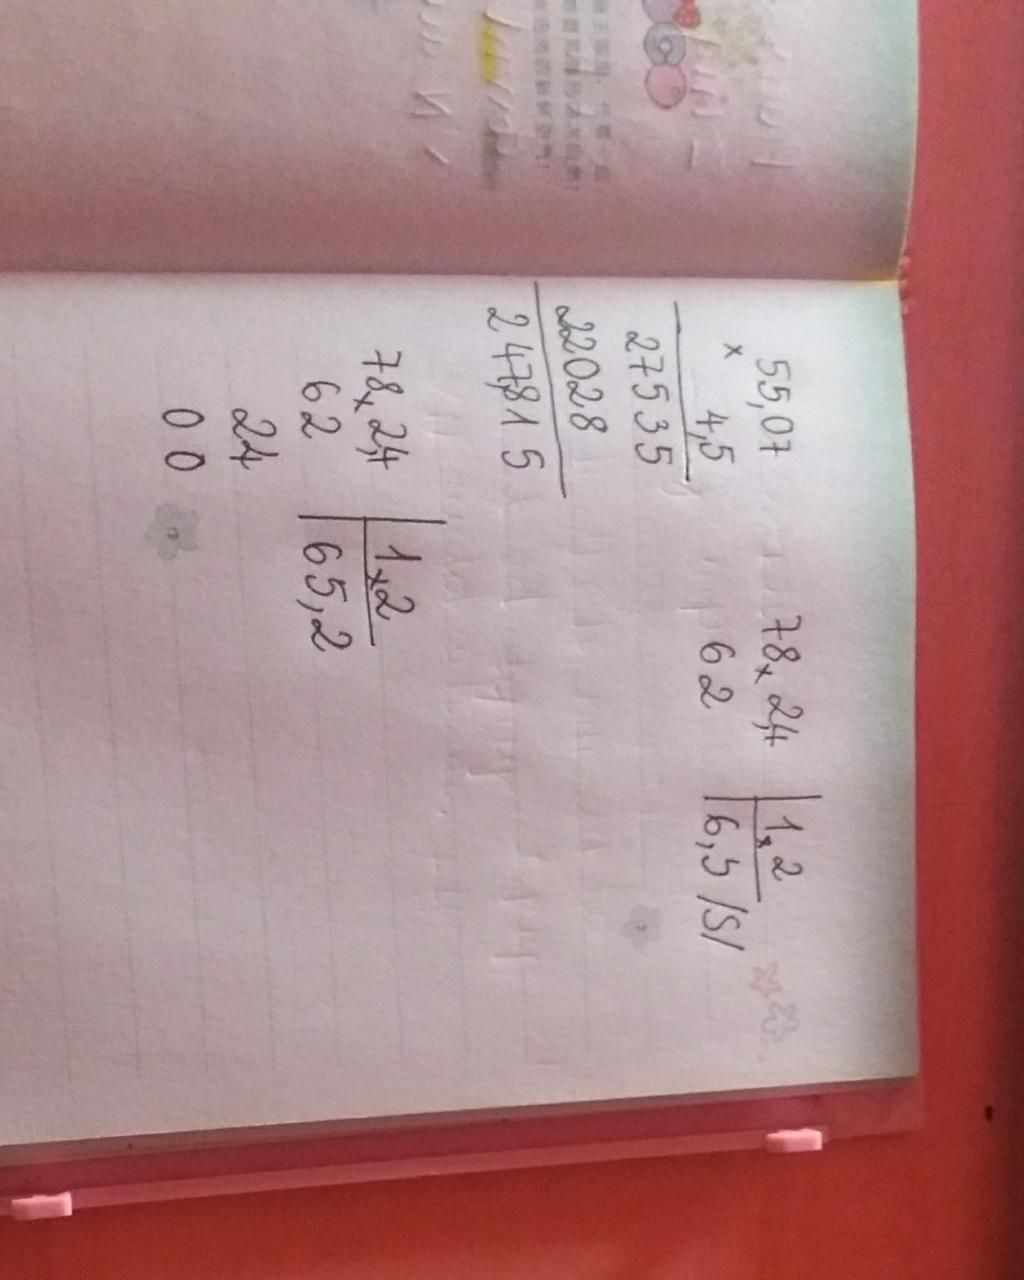 55,07
×
4,5
27535
22028
247,815
78,2,4 | 1,2
62 | 6,5 /S/
78,2,4 | 1,2
62 | 65,2
24
00